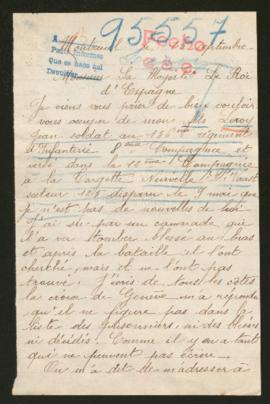 95557
Montreuil le 15 Septembre
A
Paris
Informes
Que se haga qui
Devolver
Monsieur Sa Majesté Le Roi
d'Espagne
Je viens vous prier de bien vouloir
vous occuper de mon fils Leroy
Jean soldat au 156eme régiment
d'Infanterie 8eme Compagnie et
versé dans la 12eme Compagnie
à la Targette Neuville St Vaast
secteur 125 disparu le 9 mai que
je n'est pas de nouvelles de lui
J'ai su par un camarade qui
l'a vu tomber blessé au bras
et après la bataille il l'ont
cherché, mais et ne l'ont pas
trouvé. J'écris de tous les côtés
la croix de Genève m'a répondu
qu'il ne figure pas dans la
liste des prisonniers, ni des blessés
ni décédés! Comme il y en a tant
qui ne peuvent pas écrire.
On m'a dit de m'adresser à